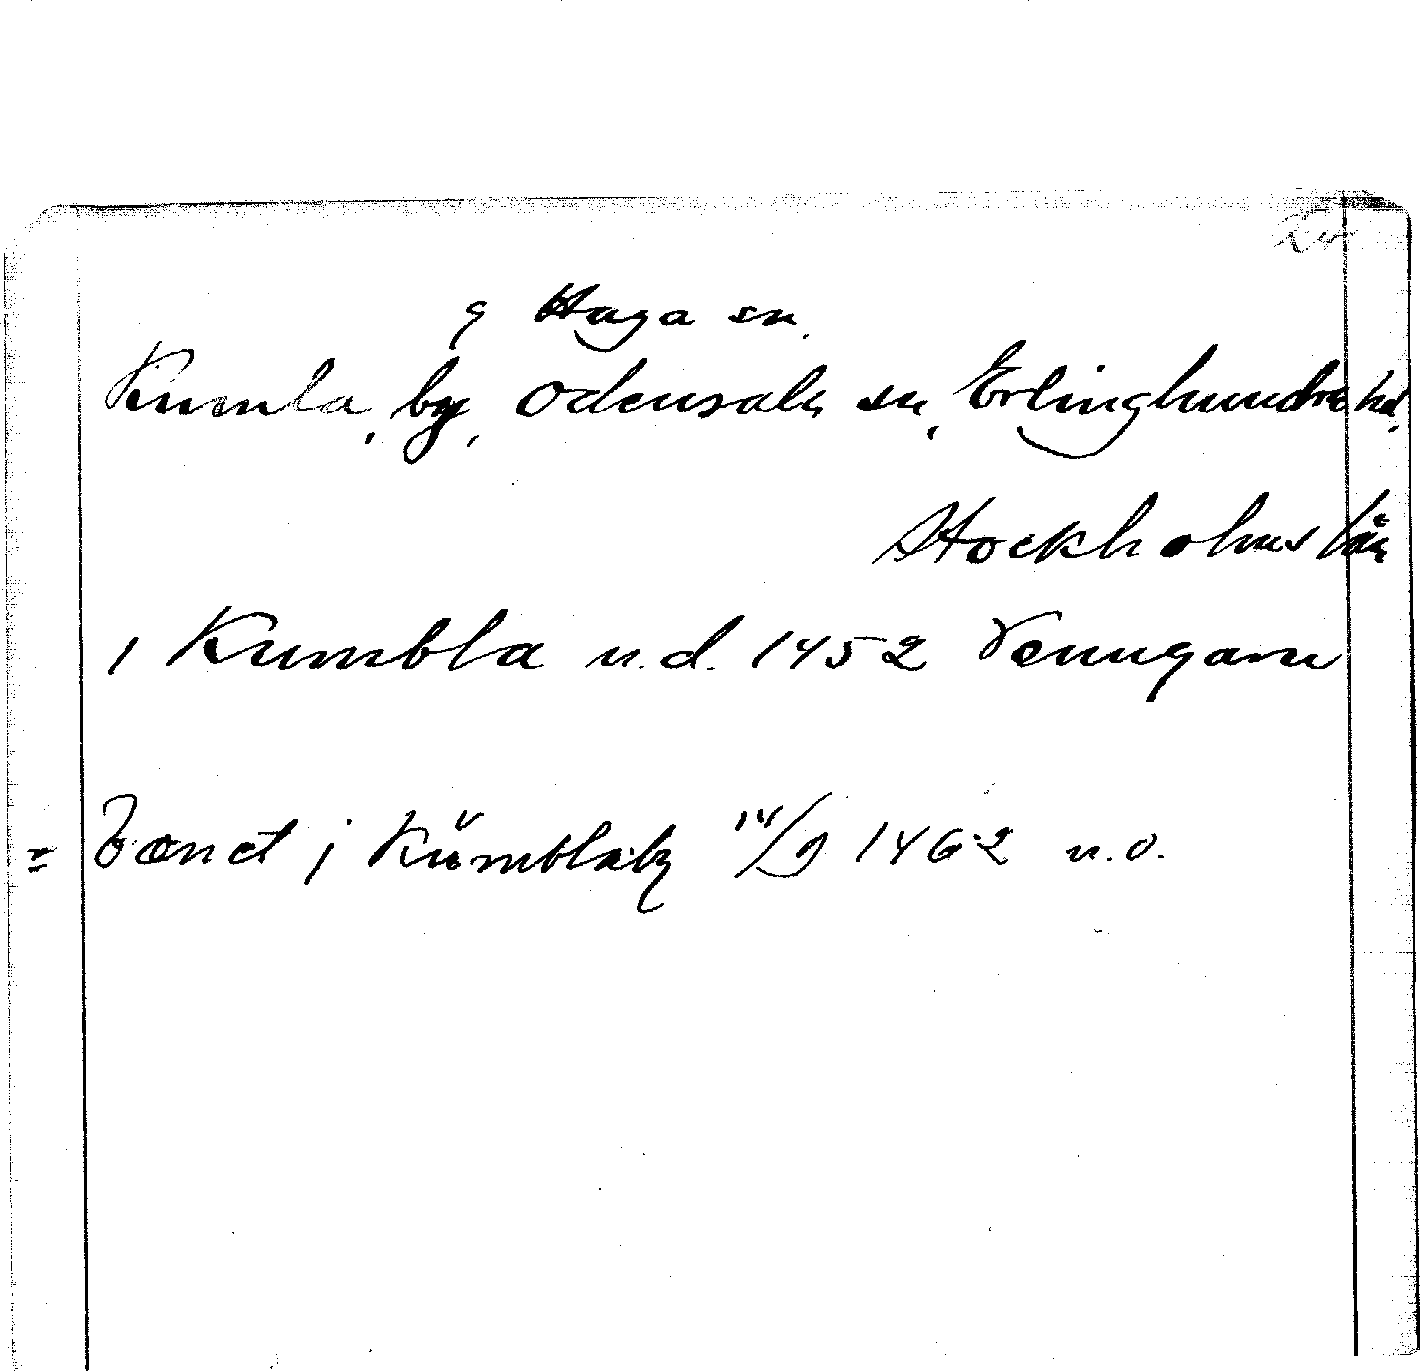 g Haga sn.
Kumla, by, Odensala sn, Erlinghundra hd,
Stockholms län
i Kumbla u.d. 1452 Venngarn
= i Kumblaby 14/9 1462 u.o.